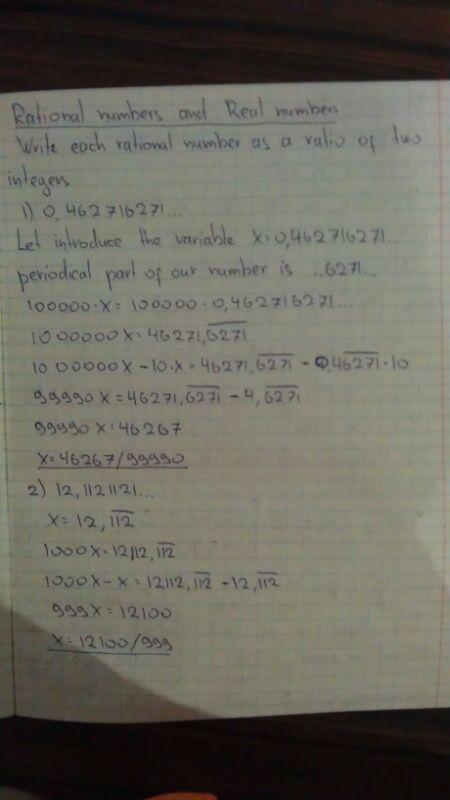 Rational numbers and Real numbers
Write each rational number as a ratio of two
integers
1) 0,462716271...
Let introduce the variable x=0,462716271...
periodical part of our number is ..6271..
100000·x=100000·0,462716271...
1000000x=46271,6̅2̅7̅1̅
1000000x-10·x=46271,6̅2̅7̅1̅-0,4̅6̅2̅7̅1̅·10
99990x=46271,6̅2̅7̅1̅-4,6̅2̅7̅1̅
99990x=46267
x=46267/99990
2) 12,1121121...
x=12,1̅1̅2̅
1000x=12112,1̅1̅2̅
1000x-x=12112,1̅1̅2̅-12,1̅1̅2̅
999x=12100
x=12100/999